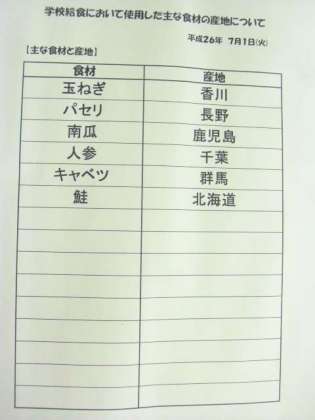 学校給食において使用した主な食材の産地について
平成26年 7月1日(火)
【主な食材と産地】
食材 産地
玉ねぎ 香川
パセリ 長野
南瓜 鹿児島
人参 千葉
キャベツ 群馬
鮭 北海道